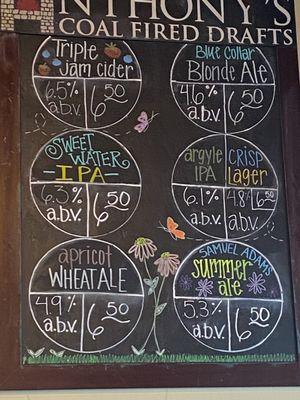 NTHONY'S
COAL FIRED DRAFTS
Triple
Jam Cider
6.5%
a.b.v.
6.50
Blue Collar
Blonde Ale
4.6%
a.b.v.
6.50
SWEET
WATER
IPA
6.3%
a.b.v.
6.50
argyle
IPA
6.1%
a.b.v.
CRISP
Lager
4.8%
a.b.v.
6.50
apricot
WHEAT ALE
4.9%
a.b.v.
6.50
SAMUEL ADAMS
Summer
ale
5.3%
a.b.v.
6.50